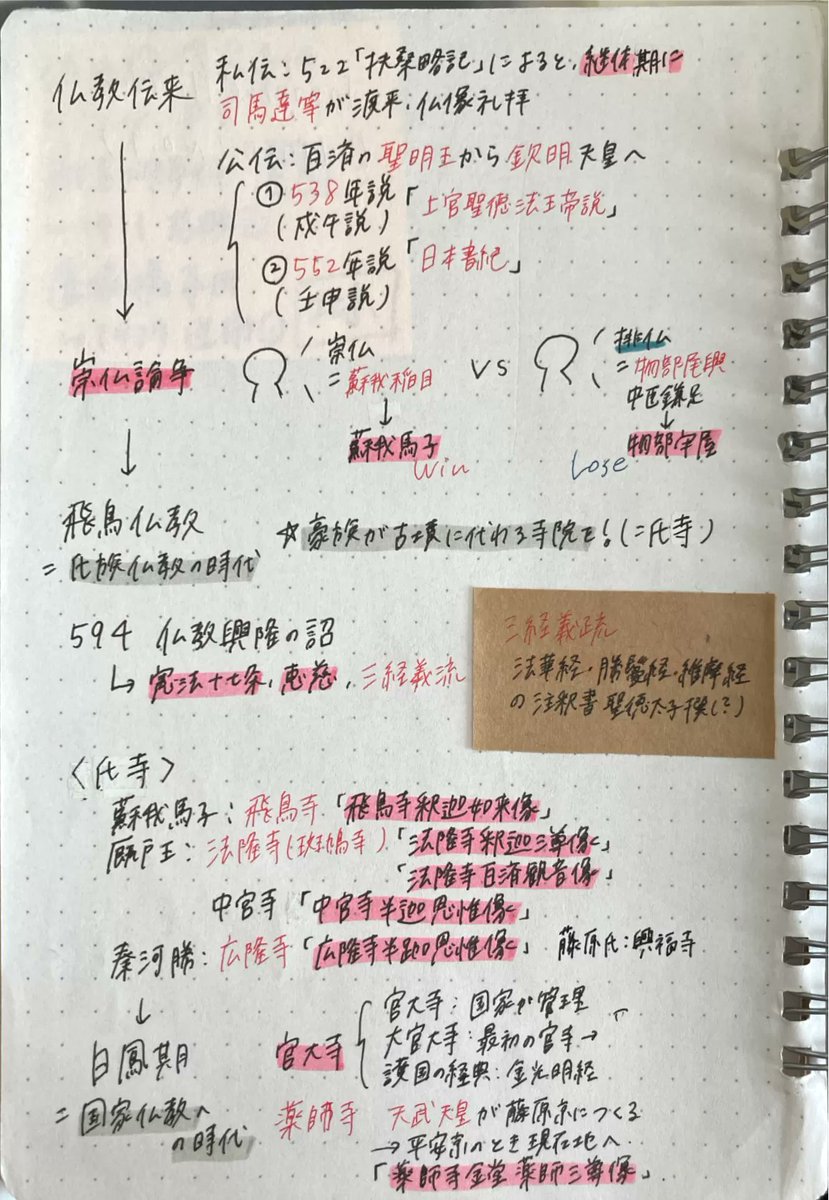 仏教伝来
私伝：522「扶桑略記」によると、継体期に
司馬達等が渡来、仏像礼拝
公伝：百済の聖明王から欽明天皇へ
①538年説「上宮聖徳法王帝説」
(戊午説)
②552年説「日本書紀」
(壬申説)
崇仏論争
崇仏
＝蘇我稲目
↓
蘇我馬子
Win
VS
排仏
＝物部尾輿
中臣鎌足
↓
物部守屋
Lose
飛鳥仏教
＝氏族仏教の時代
☆豪族が古墳に代わる寺院を！(＝氏寺)
594 仏教興隆の詔
↳憲法十七条，恵慈，三経義流
三経義疏
法華経・勝鬘経・維摩経
の注釈書 聖徳太子撰(？)
〈氏寺〉
蘇我馬子：飛鳥寺「飛鳥寺釈迦如来像」
厩戸王：法隆寺(斑鳩寺)「法隆寺釈迦三尊像」
「法隆寺百済観音像」
中宮寺「中宮寺半迦思惟像」
秦河勝：広隆寺「広隆寺半跏思惟像」 藤原氏：興福寺
↓
白鳳期
＝国家仏教へ
の時代
官大寺
官大寺：国家が管理
大官大寺：最初の官寺→「
護国の経典：金光明経
薬師寺 天武天皇が藤原京につくる
→平安京のとき現在地へ
「薬師寺金堂薬師三尊像」